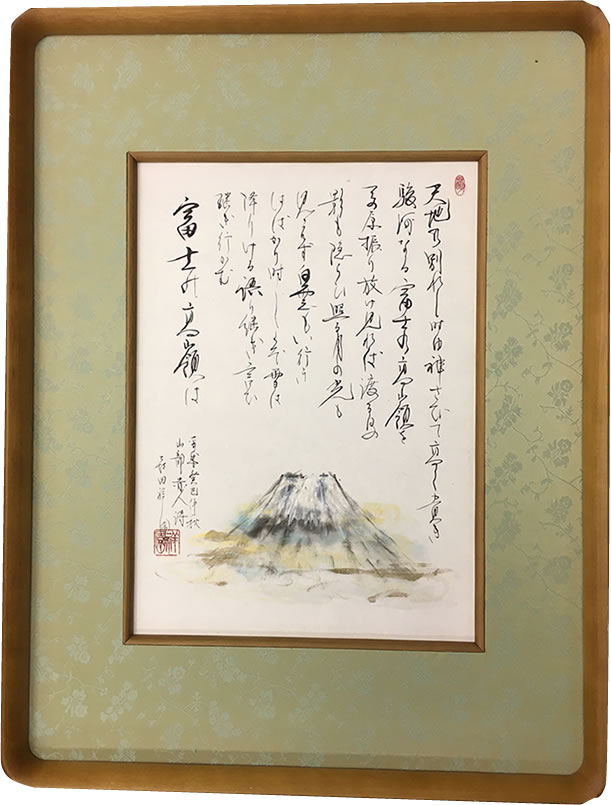 天地の別れし時ゆ神さびて高く貴き
駿河なる富士の高嶺を
天の原振り放け見れば渡る日の
影も隠らひ照る月の光も
見えず白雲もい行き
はばかり時じくぞ雪は
降りける語り継ぎ言ひ
継ぎ行かむ
富士の高嶺は
万葉癸巳年秋
山部赤人詩